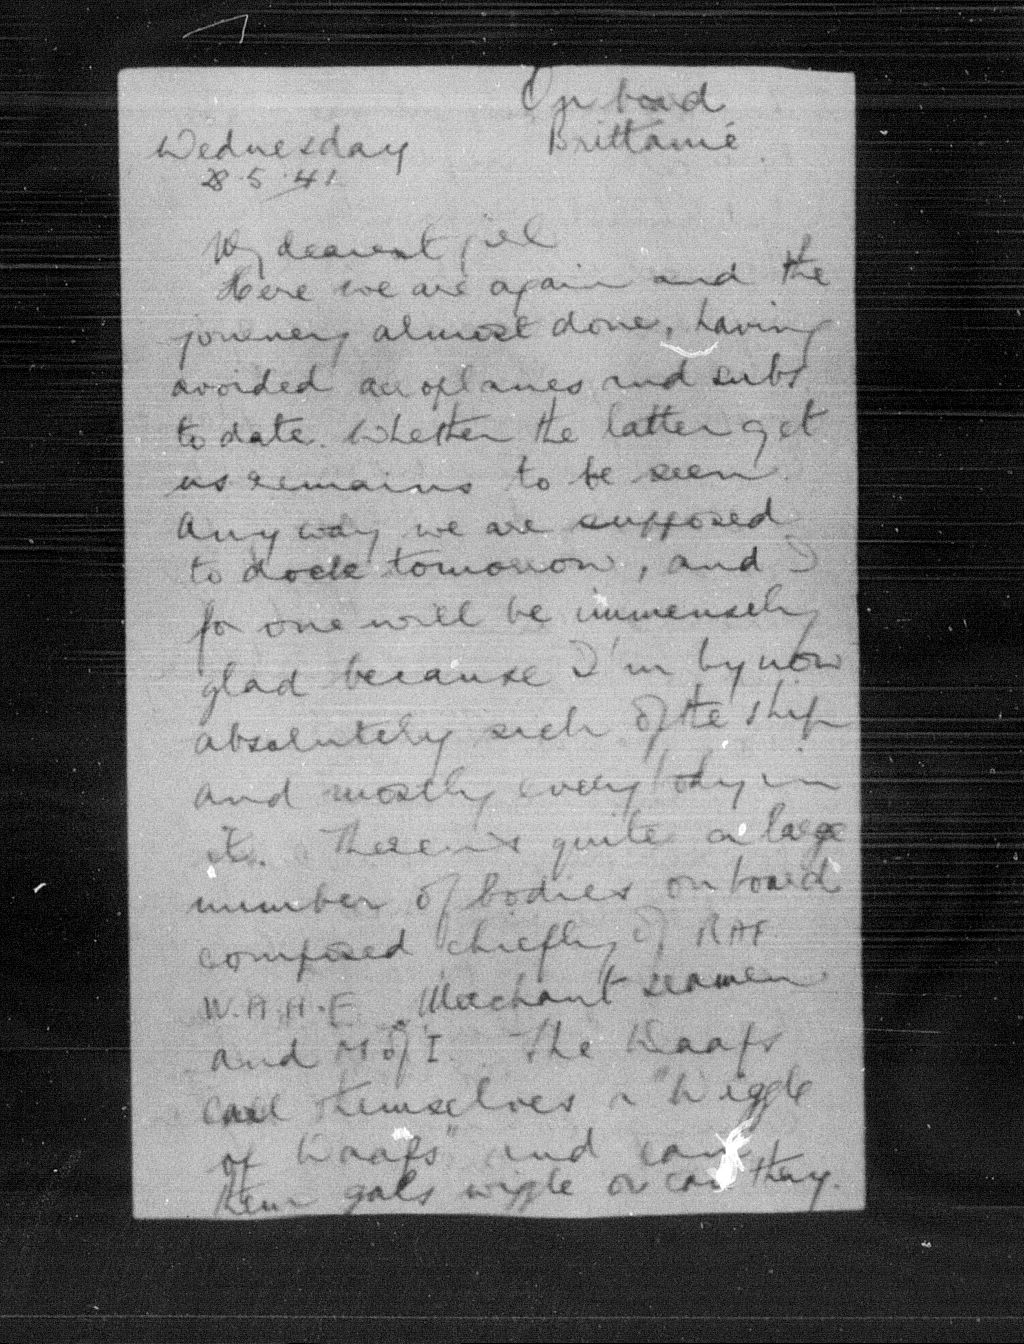 On board
Brittanié.
Wednesday
28.5.41.
My dearest girl
Here we are again and the
journey almost done, having
avoided aeroplanes and subs
to date. Whether the latter get
us remains to be seen.
Anyway we are supposed
to dock tomorrow, and I
for one will be immensely
glad because I'm by now
absolutely sick of the ship
and mostly everybody in
it. There is quite a large
number of bodies on board
composed chiefly of RAF.
W.A.A.F. Merchant seamen
and M of I. The Waafs
call themselves a "Wiggle
of Waafs" and can
them gals wiggle or can they.